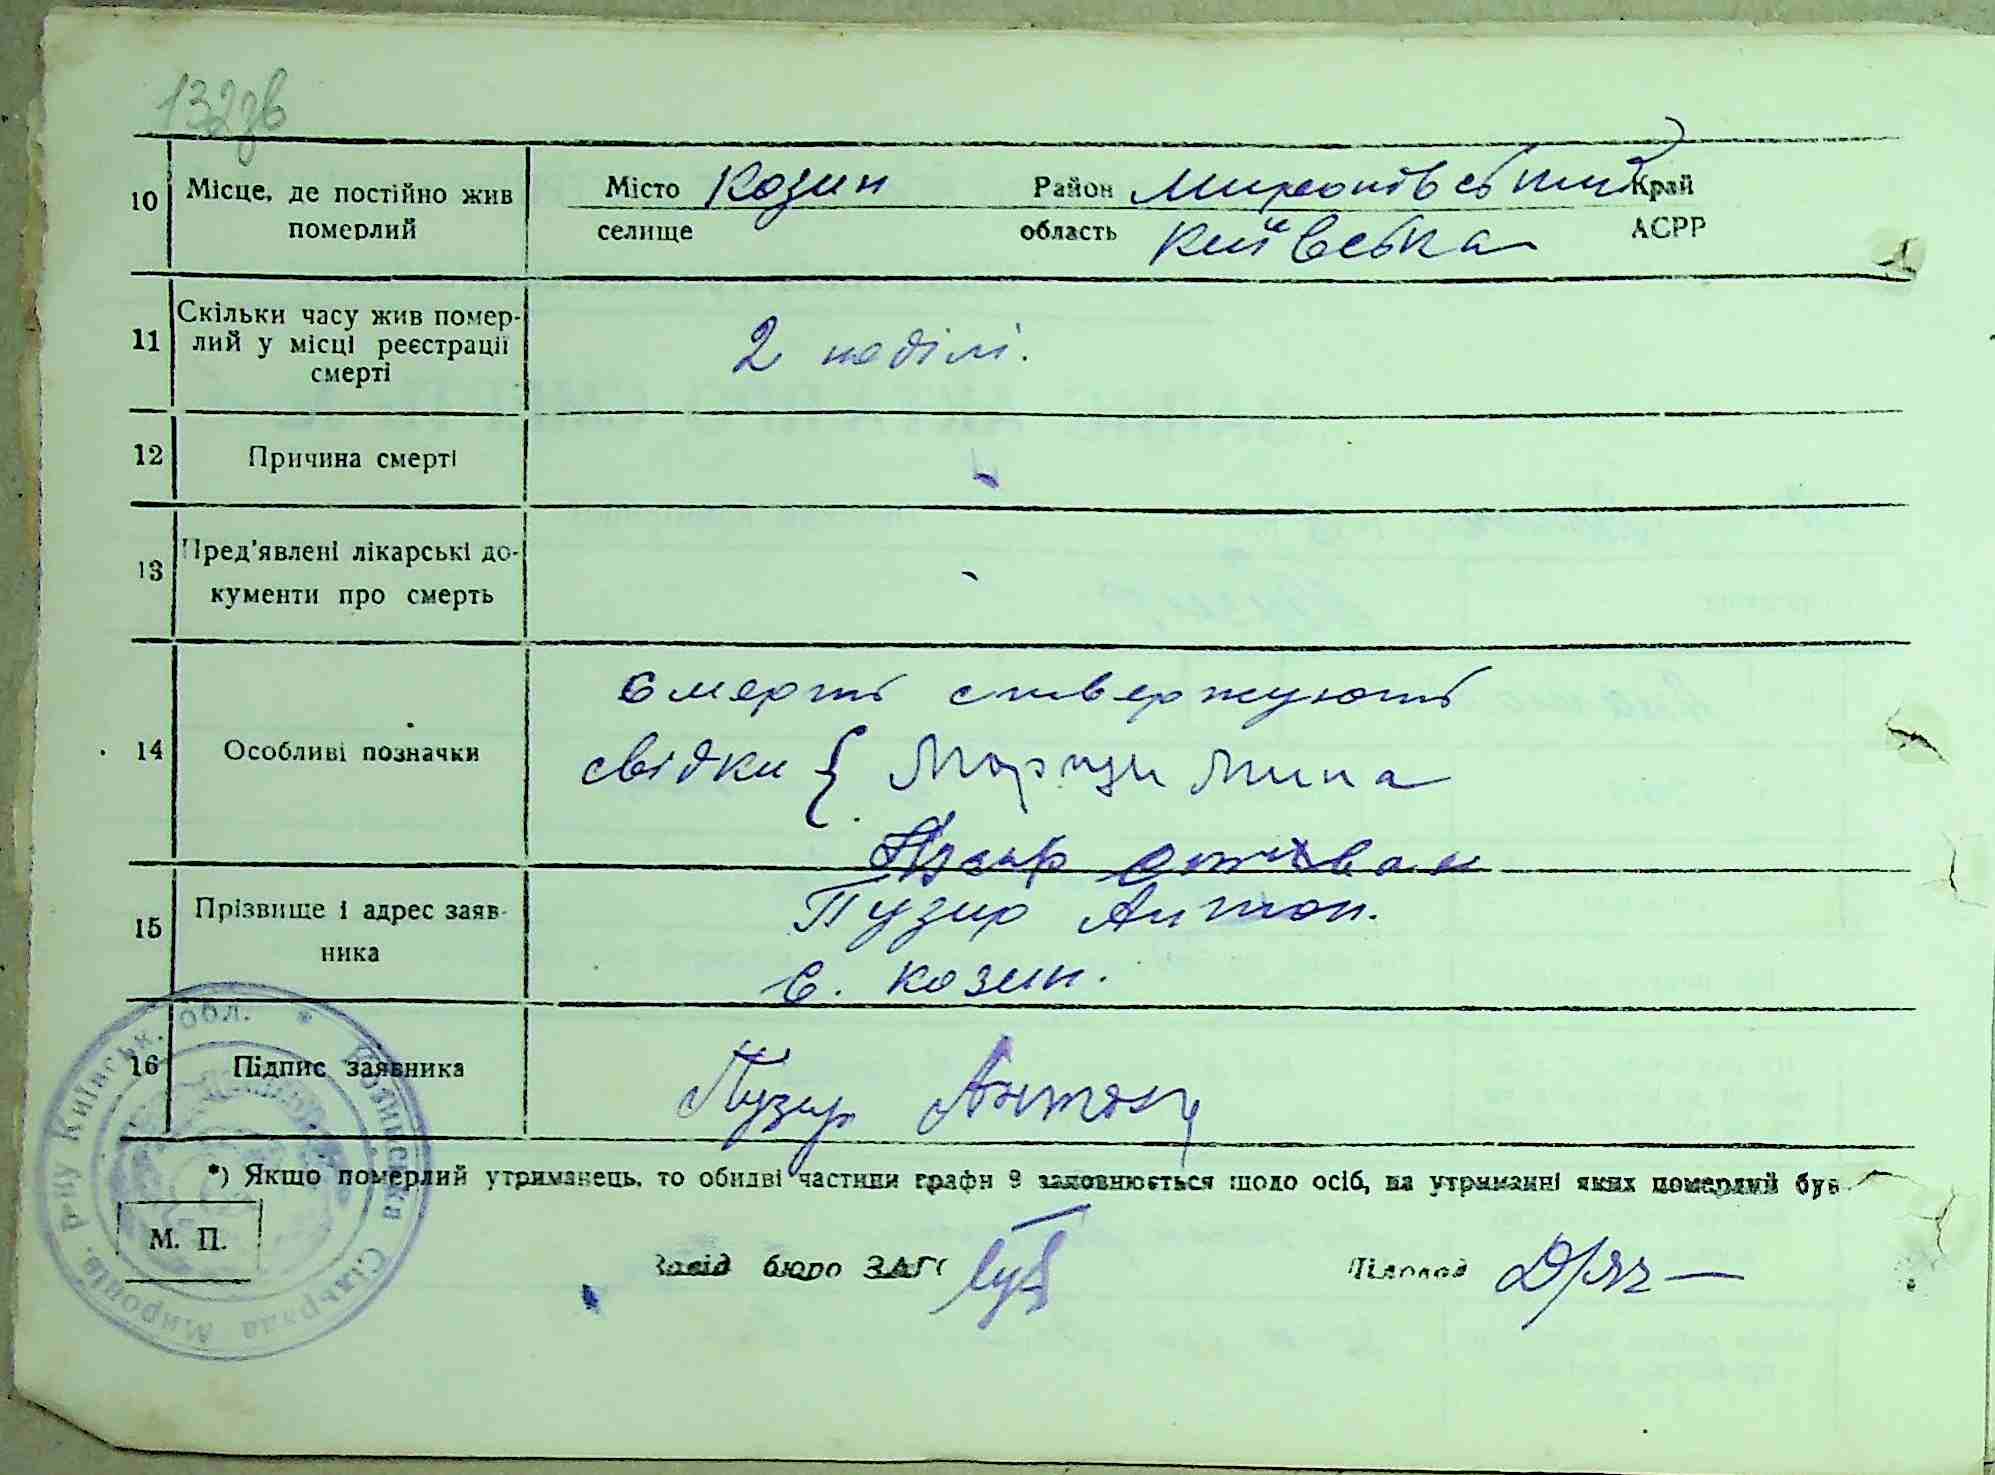 132зв
10 Місце, де постійно жив померлий Місто Козин Район Миронівський Край
селище область Київська АСРР
11 Скільки часу жив помер-
лий у місці реєстрації
смерті 2 неділі.
12 Причина смерті
13 Пред'явлені лікарські до-
кументи про смерть
14 Особливі позначки
Смерть ствержують
свідки { Мина
15 Прізвище і адрес заяв-
ника Пузир Антон.
С. Козин.
16 Підпис заявника Пузир Антон
*) Якщо померлий утриманець, то обидві частини графи 9 заповнюється щодо осіб, на утриманні яких померлий був
М. П.
Завід бюро ЗАГС Діловод
Козинська Сільрада Миронів. р-ну Київськ. обл. *